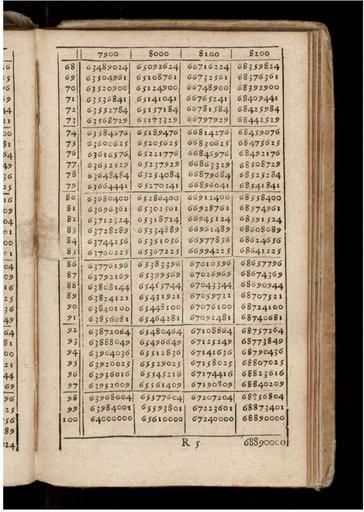 7900 8000 8100 8200
68 63489024 65092624 66716224 68359824
69 63504961 65108761 66732561 68376361
70 63520900 65124900 66748900 68392900
71 63536841 65141041 66765241 68409441
72 63552784 65157184 66781584 68425984
73 63568729 65173329 66797929 68442529
74 63584676 65189476 66814276 68459076
75 63600625 65205625 66830625 68475625
76 63616576 65221776 66846976 68492176
77 63632529 65237929 66863329 68508729
78 63648484 65254084 66879684 68525284
79 63664441 65270241 66896041 68541841
80 63680400 65286400 66912400 68558400
81 63696361 65302561 66928761 68574961
82 63712324 65318714 66945124 68591524
83 63728289 65334889 66961489 68608089
84 63744256 65351056 66977856 68624656
85 63760225 65367225 66994225 68641225
86 63776196 65383396 67010596 68657796
87 63792169 65399569 67026969 68674369
88 63808144 65415744 67043344 68690944
89 63824121 65431921 67059721 68707521
90 63840100 65448100 67076100 68724100
91 63856081 65464281 67092481 68740681
92 63872064 65480464 67108864 68757264
93 63888049 65496649 67125249 68773849
94 63904036 65512836 67141636 68790436
95 63920025 65529025 67158025 68807025
96 63936016 65545216 67174416 68823616
97 63952009 65561409 67190809 68840209
98 63968004 65577604 67207204 68756804
99 63984001 65593801 67223601 68873401
100 64000000 65610000 67240000 68890000
R 5 68890000